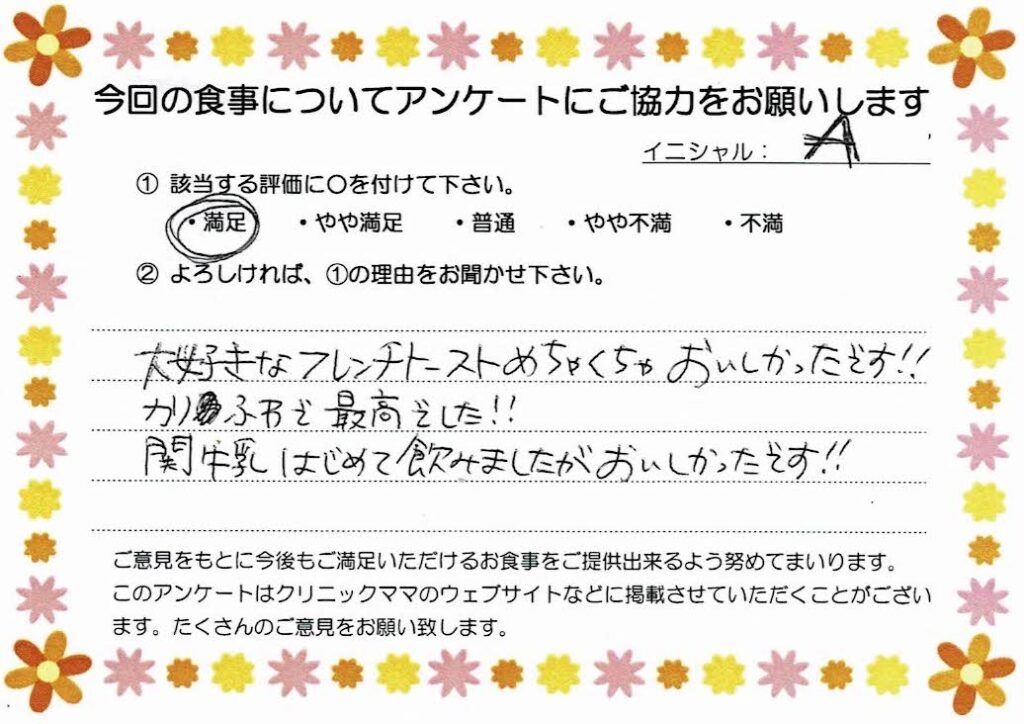 今回の食事についてアンケートにご協力をお願いします
イニシャル： A
① 該当する評価に〇を付けて下さい。
・満足 ・やや満足 ・普通 ・やや不満 ・不満
② よろしければ、①の理由をお聞かせ下さい。
大好きなフレンチトーストめちゃくちゃおいしかったです!!
カリふわで最高でした!!
関牛乳はじめて飲みましたがおいしかったです!!
ご意見をもとに今後もご満足いただけるお食事をご提供出来るよう努めてまいります。
このアンケートはクリニックママのウェブサイトなどに掲載させていただくことがござい
ます。たくさんのご意見をお願い致します。